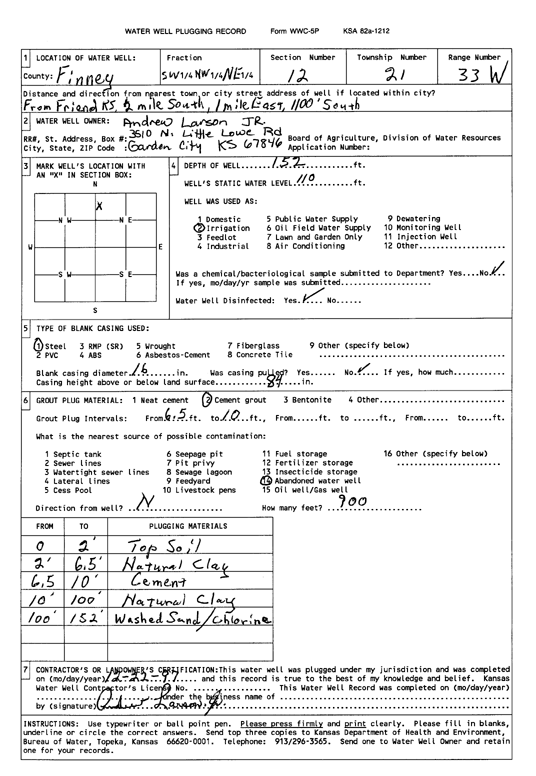 WATER WELL PLUGGING RECORD Form WWC-5P KSA 82a-1212
1 LOCATION OF WATER WELL: Fraction Section Number Township Number Range Number
County: Finney SW1/4 NW1/4 NE1/4 12 21 33 W
Distance and direction from nearest town or city street address of well if located within city?
From Friend KS, ½ mile South, 1 mile East, 1100' South
2 WATER WELL OWNER: Andrew Larson JR.
RR#, St. Address, Box #: 3510 N. Little Lowe Rd Board of Agriculture, Division of Water Resources
City, State, ZIP Code : Garden City KS 67846 Application Number:
3 MARK WELL'S LOCATION WITH AN "X" IN SECTION BOX:
N
X
N W N E
W E
S W S E
S
4 DEPTH OF WELL.....152......ft.
WELL'S STATIC WATER LEVEL.110.........ft.
WELL WAS USED AS:
1 Domestic 5 Public Water Supply 9 Dewatering
2 Irrigation 6 Oil Field Water Supply 10 Monitoring Well
3 Feedlot 7 Lawn and Garden Only 11 Injection Well
4 Industrial 8 Air Conditioning 12 Other................
Was a chemical/bacteriological sample submitted to Department? Yes....No.✓..
If yes, mo/day/yr sample was submitted...................
Water Well Disinfected: Yes.✓... No......
5 TYPE OF BLANK CASING USED:
1 Steel 3 RMP (SR) 5 Wrought 7 Fiberglass 9 Other (specify below)
2 PVC 4 ABS 6 Asbestos-Cement 8 Concrete Tile ........................
Blank casing diameter.16......in. Was casing pulled? Yes...... No.✓.... If yes, how much...........
Casing height above or below land surface............84.....in.
6 GROUT PLUG MATERIAL: 1 Neat cement 2 Cement grout 3 Bentonite 4 Other......................
Grout Plug Intervals: From.6.5.ft. to.10..ft., From......ft. to ......ft., From...... to......ft.
What is the nearest source of possible contamination:
1 Septic tank 6 Seepage pit 11 Fuel storage 16 Other (specify below)
2 Sewer lines 7 Pit privy 12 Fertilizer storage ....................
3 Watertight sewer lines 8 Sewage lagoon 13 Insecticide storage
4 Lateral lines 9 Feedyard 14 Abandoned water well
5 Cess Pool 10 Livestock pens 15 Oil well/Gas well
Direction from well? ..N................ How many feet? ..900............
FROM TO PLUGGING MATERIALS
0 2' Top Soil
2' 6.5' Natural Clay
6.5 10' Cement
10' 100' Natural Clay
100' 152' Washed Sand/Chlorine
7 CONTRACTOR'S OR LANDOWNER'S CERTIFICATION:This water well was plugged under my jurisdiction and was completed
on (mo/day/year) 12-22-97..... and this record is true to the best of my knowledge and belief. Kansas
Water Well Contractor's License No. ................. This Water Well Record was completed on (mo/day/year)
........................ under the business name of ..............................................
by (signature)
INSTRUCTIONS: Use typewriter or ball point pen. Please press firmly and print clearly. Please fill in blanks,
underline or circle the correct answers. Send top three copies to Kansas Department of Health and Environment,
Bureau of Water, Topeka, Kansas 66620-0001. Telephone: 913/296-3565. Send one to Water Well Owner and retain
one for your records.